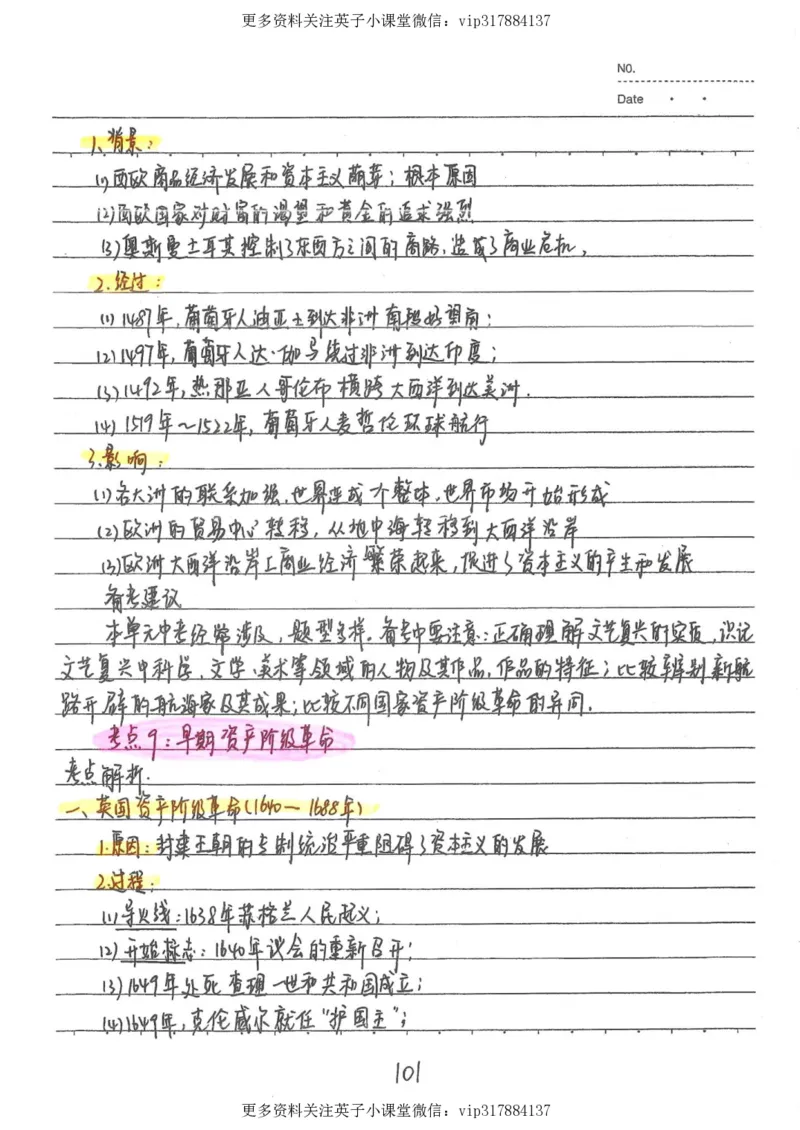 更多资料关注英子小课堂微信：vip317884137
NO.
Date
1、背景：
(1)西欧商品经济发展和资本主义萌芽；根本原因
(2)西欧国家对财富的渴望和黄金的追求强烈
(3)奥斯曼土耳其控制了东西方之间的商路，造成了商业危机。
2.经过：
(1)1487年，葡萄牙人迪亚士到达非洲南段好望角；
(2)1497年，葡萄牙人达·伽马绕过非洲到达印度；
(3)1492年，热那亚人哥伦布横跨大西洋到达美洲.
(4)1519年~1522年，葡萄牙人麦哲伦环球航行
3.影响：
(1)各大洲的联系加强，世界连成个整体，世界市场开始形成
(2)欧洲的贸易中心转移，从地中海转移到大西洋沿岸
(3)欧洲大西洋沿岸工商业经济繁荣起来，促进了资本主义的产生和发展
备考建议
本单元中考经常涉及，题型多样。备考中要注意：正确理解文艺复兴的实质，识记
文艺复兴中科学、文学、美术等领域的人物及其作品，作品的特征；比较辨别新航
路开辟的航海家及其成果；比较不同国家资产阶级革命的异同.
考点9：早期资产阶级革命
考点解析.
一、英国资产阶级革命(1640—1688年)
1.原因：封建王朝的专制统治严重阻碍了资本主义的发展
2.过程：
(1)导火线：1638年苏格兰人民起义；
(2)开始标志：1640年议会的重新召开；
(3)1649年处死查理一世和共和国成立；
(4)1649年，克伦威尔就任“护国主”；
101
更多资料关注英子小课堂微信：vip317884137